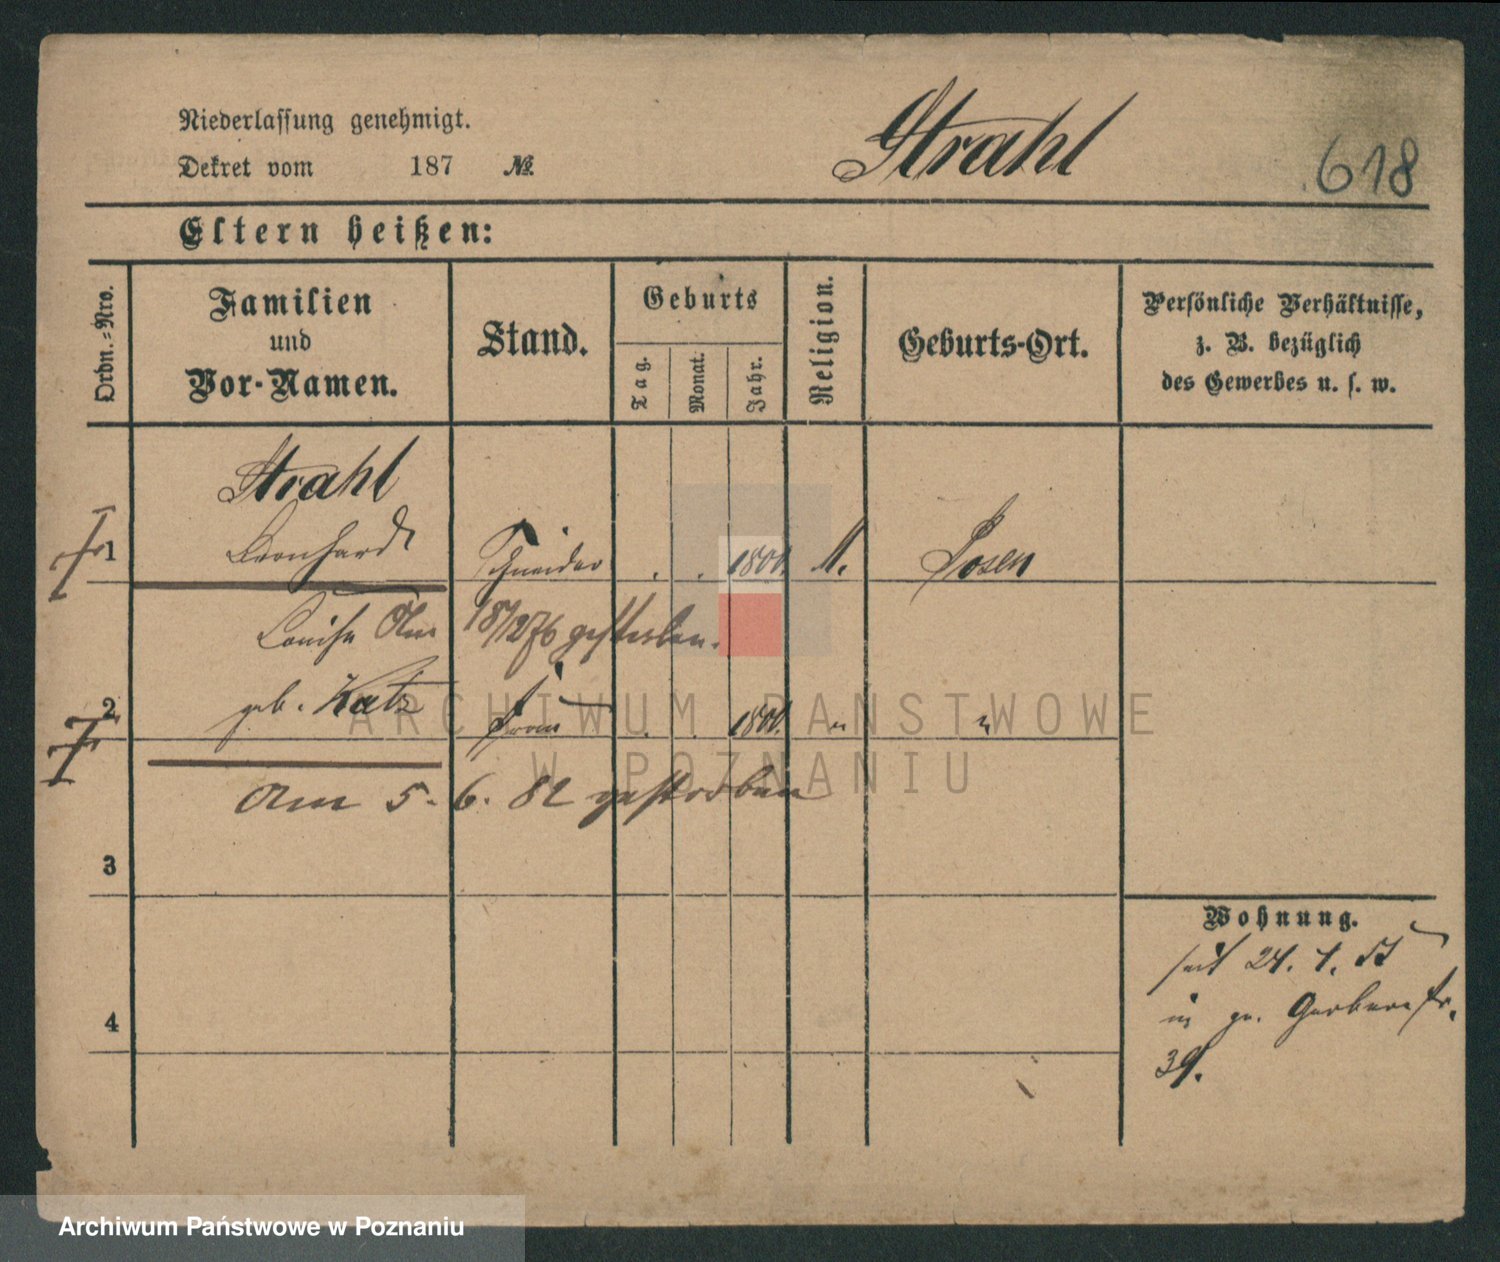 Niederlassung genehmigt.
Dekret vom 187 №
Strahl
618
Eltern heißen:
Ordn.=Nro.
Familien
und
Vor-Namen.
Stand.
Geburts
Tag.
Monat.
Jahr.
Religion.
Geburts-Ort.
Persönliche Verhältnisse,
z. B. bezüglich
des Gewerbes u. s. w.
Strahl
1 Leonhardt Schneider . . M. Posen
Louise Am 18/12 76 gestorben.
2 geb. Katz Frau . . " "
Am 5. 6. 82 gestorben
3
4
Wohnung.
seit 24. 1.
in gr. Gerberstr.
39.
ARCHIWUM PAŃSTWOWE
W POZNANIU
Archiwum Państwowe w Poznaniu